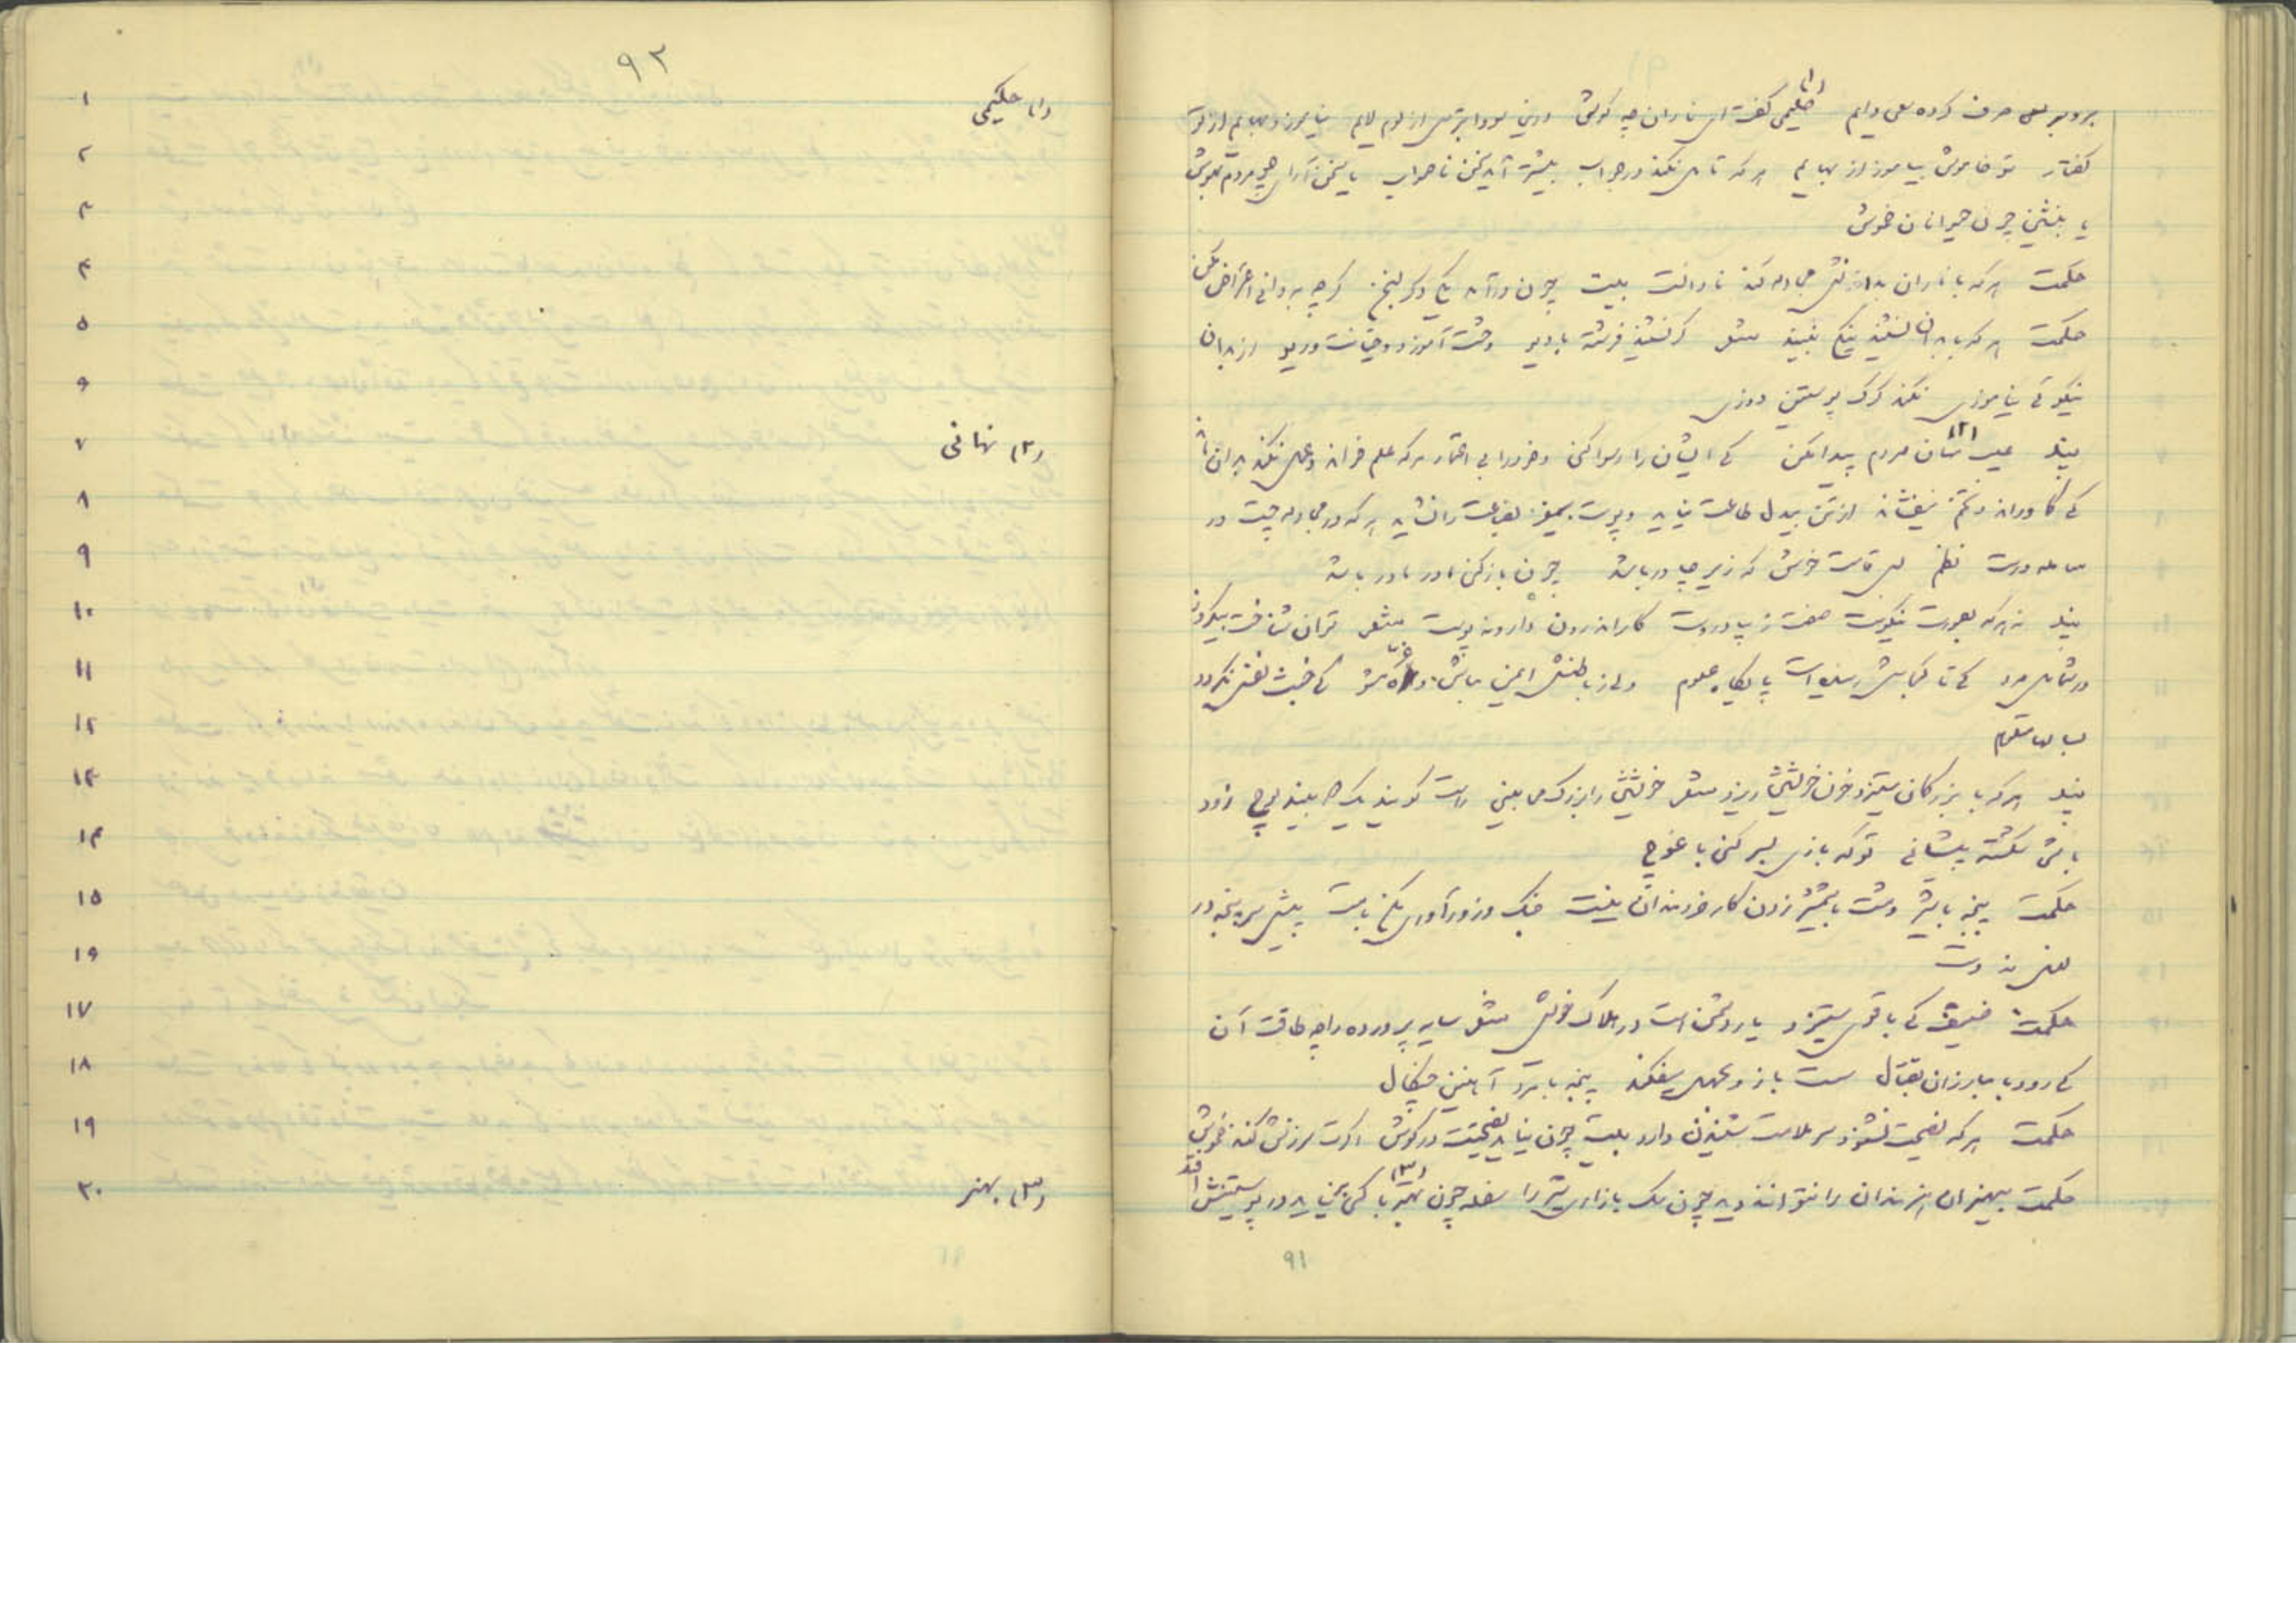 برو بر سعی صرف کرده سعی دایم حکیمی (۱) گفت ای نادان چه کوشی درین سودا بترس از لوم لایم نیاموزد بهایم از تو
گفتار تو خاموشی بیاموز از بهایم هر که تامل نکند در جواب بیشتر آید سخنش ناصواب یا سخن آرای چو مردم بهوش
یا بنشین چون حیوانان خموش
حکمت هر که با نادان جدل کند نادانست بیت چون درآید به از توئی بسخن گرچه به دانی اعتراض مکن
حکمت هر که با بدان نشیند نیکی نبیند شعر گر نشیند فرشته با دیو وحشت آموزد و خیانت و ریو از بدان
نیکوئی نیاموزی نکند گرگ پوستین دوزی
پند عیب (۲) نهان مردم پیدا مکن که ایشان را رسوا کنی و خود را بی اعتماد هر که علم خواند و عمل نکند بدان ماند
که گاو راند و تخم نیفشاند از تن بیدل طاعت نیاید و پوست بیمغز بضاعت را نشاید نه هر که در مجادله چست در
معامله درست نظم بس قامت خوش که زیر چادر باشد چون باز کنی مادر مادر باشد
پند نه هر که بصورت نیکوست سیرت زیبا دروست کار اندرون دارد نه پوست شعر توان شناخت بیکروز
در شمایل مرد که تا کجاش رسیده است پایگاه علوم ولی ز باطنش ایمن مباش و غره مشو که خبث نفس نگردد
بسالها معلوم
پند هر که با بزرگان ستیزد خون خویشتن ریزد شعر خویشتن را بزرگ می بینی راست گویند یک دو بیند لوچ زود
باشد شکسته پیشانی تو که بازی بسر کنی با غوچ
حکمت پنجه با شیر و مشت با شمشیر زدن کار خردمندان نیست جنگ و زورآوری مکن با مست پیش سرپنجه در
بغل نه دست
حکمت ضعیفی که با قوی ستیزد یار دشمن است در هلاک خویش شعر سایه پرورده را چه طاقت آن
که رود با مبارزان بقتال سست بازو بجهل میفکند پنجه با مرد آهنین چنگال
حکمت هر که نصیحت نشنود سر ملامت شنیدن دارد بیت چون نیاید نصیحتت در گوش اگرت سرزنش کنند خموش
حکمت بیهنران هنرمندان را نتوانند دید چون سگ بازاری شیر را سفله چون بهنر (۳) با کسی برنیاید در پوستینش افتد
۹۱
۹۲
۱ (۱) حکیمی
۲
۳
۴
۵
۶
۷ (۲) نهانی
۸
۹
۱۰
۱۱
۱۲
۱۳
۱۴
۱۵
۱۶
۱۷
۱۸
۱۹
۲۰ (۳) بهنر